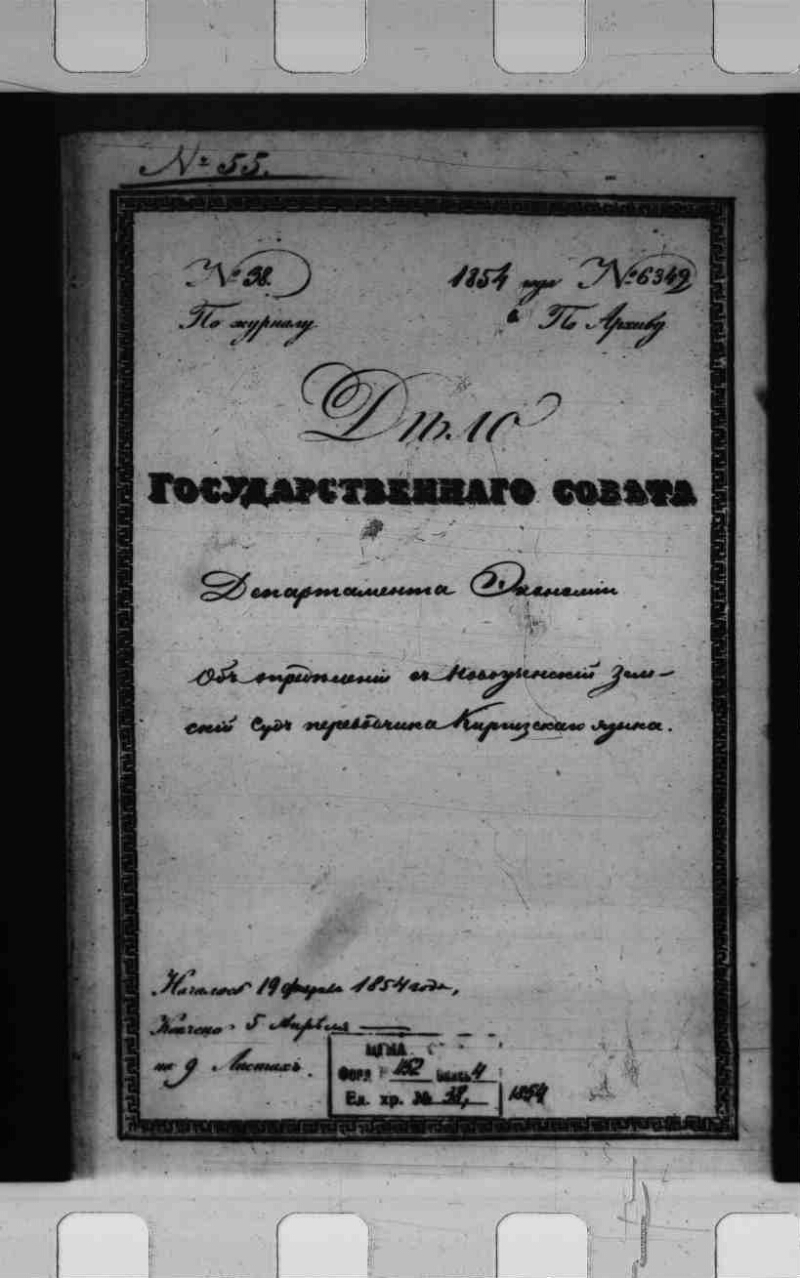 № 55.
№ 38. 1854 года № 6349
По журналу. По Архиву
Дѣло
ГОСУДАРСТВЕННАГО СОВѢТА
Департамента Экономіи
Объ опредѣленіи въ Новоузенскій Зем-
скій Судъ переводчика Киргизскаго языка.
Началось 19 февраля 1854 года,
Кончено 5 Апрѣля
на 9 Листахъ.
ЦГИА
Фонд 1152 Опись 4
Ед. хр. № 38, 1854